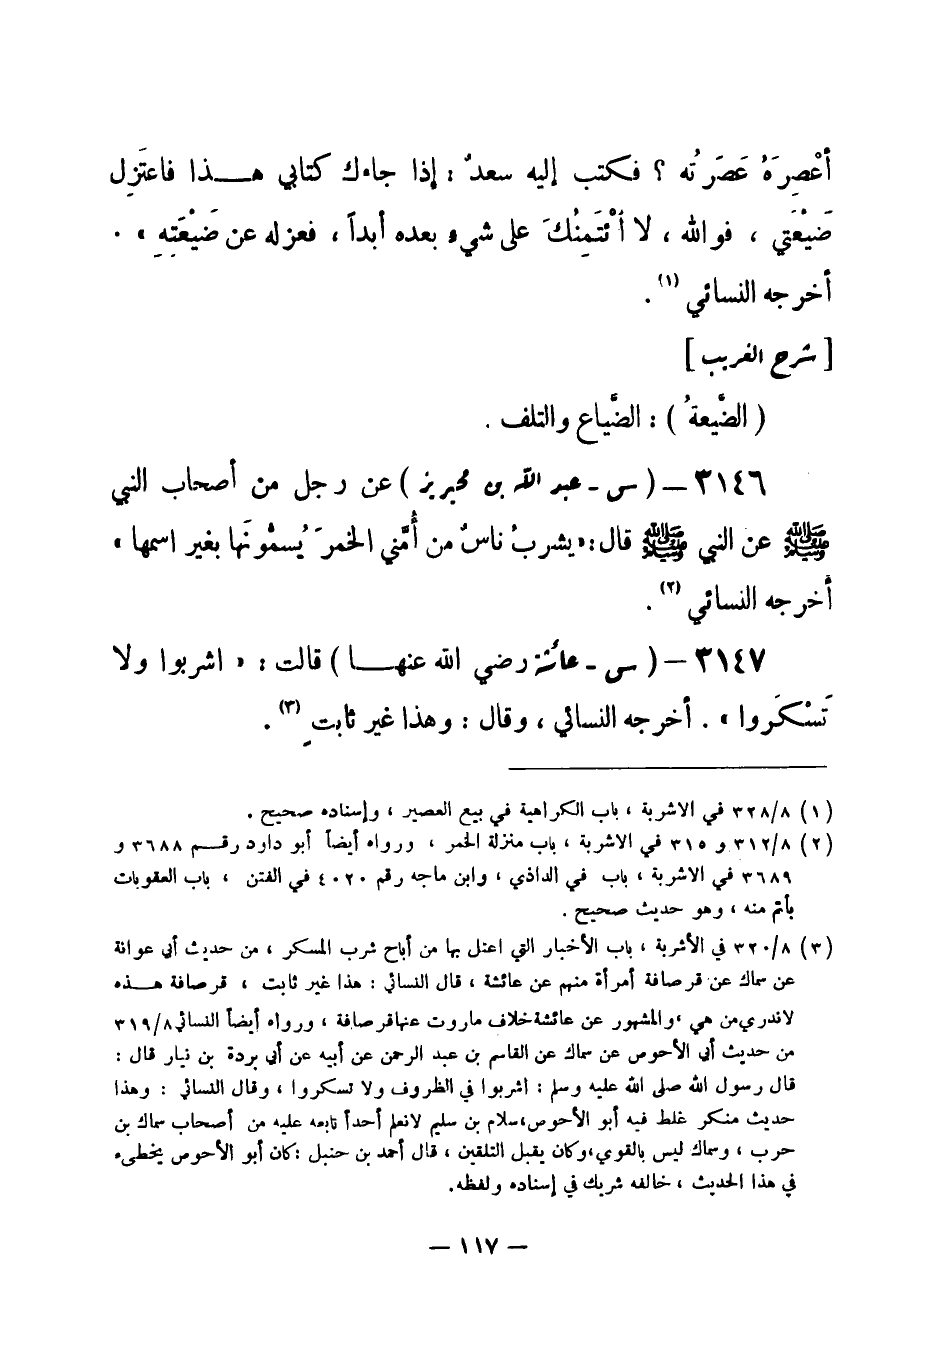 أعْصِرَهُ عَصَرْتُه ؟ فكتب إليه سعدٌ : إذا جاءك كتابي هـــذا فاعتَزِل
ضَيْعَتي ، فوالله ، لا أئْتَمِنُكَ على شيء بعده أبداً ، فعزله عن ضَيْعَتِهِ » .
أخرجه النسائي (١) .
[ شرح الغريب ]
( الضَّيعةُ ) : الضَّياع والتلف .
٣١٤٦ – ( س - عبد الله بن محيريز ) عن رجل من أصحاب النبي
ﷺ عن النبي ﷺ قال : « يشربُ ناسٌ من أُمَّتي الخمرَ يُسمُّونَها بغير اسمها »
أخرجه النسائي (٢) .
٣١٤٧ – ( س - عائشة رضي الله عنهـــا ) قالت : « اشربوا ولا
تَسْكَروا » . أخرجه النسائي ، وقال : وهذا غير ثابتٍ (٣) .
(١) ٣٢٨/٨ في الاشربة ، باب الكراهية في بيع العصير ، وإسناده صحيح .
(٢) ٣١٢/٨ و ٣١٥ في الاشربة ، باب منزلة الخمر ، ورواه أيضاً أبو داود رقــم ٣٦٨٨ و
٣٦٨٩ في الاشربة ، باب في الداذي ، وابن ماجه رقم ٤٠٢٠ في الفتن ، باب العقوبات
بأتم منه ، وهو حديث صحيح .
(٣) ٣٢٠/٨ في الأشربة ، باب الأخبار التي اعتل بها من أباح شرب المسكر ، من حديث أبي عوانة
عن سماك عن قرصافة أمرأة منهم عن عائشة ، قال النسائي : هذا غير ثابت ، قرصافة هــذه
لاندري من هي ، والمشهور عن عائشة خلاف ماروت عنها قرصافة ، ورواه أيضاً النسائي ٣١٩/٨
من حديث أبي الأحوص عن سماك عن القاسم بن عبد الرحمن عن أبيه عن أبي بردة بن نيار قال :
قال رسول الله صلى الله عليه وسلم : اشربوا في الظروف ولا تسكروا ، وقال النسائي : وهذا
حديث منكر غلط فيه أبو الأحوص ، سلام بن سليم لانعلم أحداً تابعه عليه من أصحاب سماك بن
حرب ، وسماك ليس بالقوي ، وكان يقبل التلقين ، قال أحمد بن حنبل : كان أبو الأحوص يخطىء
في هذا الحديث ، خالفه شريك في إسناده ولفظه .
– ١١٧ –